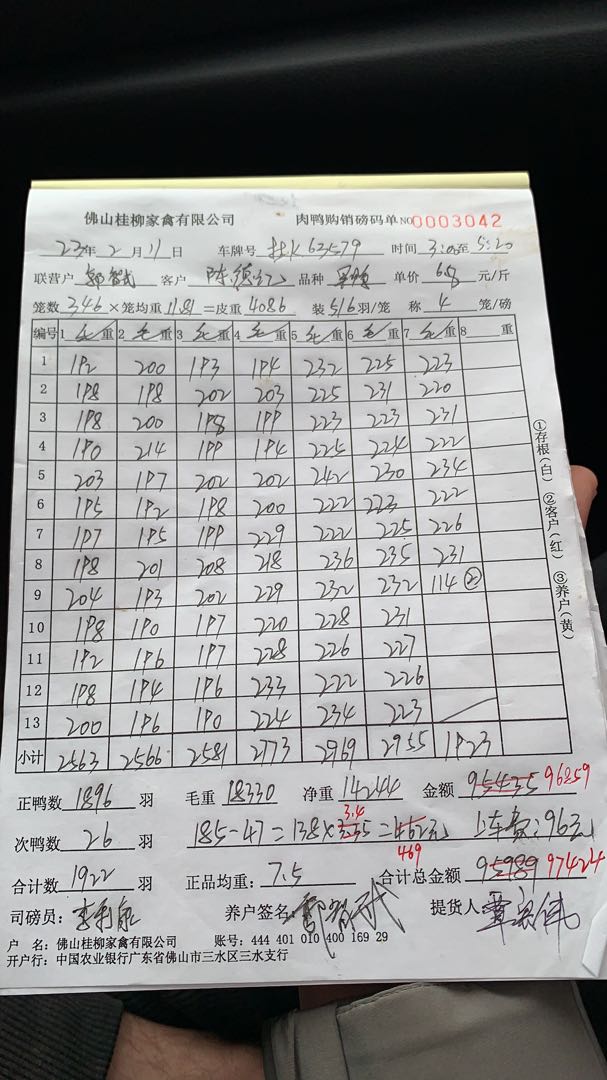 佛山桂柳家禽有限公司 肉鸭购销磅码单 NO 0003042
23年 2月 11日 车牌号 63579 时间 3:00至 5:20
联营户 郭智武 客户 品种 单价 6.8 元/斤
笼数 346 ×笼均重 11.81 =皮重 4086 装 5/6 羽/笼 称 4 笼/磅
编号 1 毛重 2 毛重 3 毛重 4 毛重 5 毛重 6 毛重 7 毛重 8 重
1 192 200 193 194 232 225 223
2 198 198 202 203 225 231 220
3 198 200 198 199 223 223 231
4 190 214 199 194 225 224 222
5 203 197 202 202 242 230 234
6 195 192 198 200 222 223 222
7 197 195 199 229 222 225 226
8 198 201 208 218 236 235 231
9 204 193 202 229 232 232 114 ②
10 198 190 197 220 228 231
11 192 196 197 228 226 227
12 198 194 196 233 222 226
13 200 196 190 224 234 223
小计 2563 2566 2581 2773 2969 2955 1923
正鸭数 1896 羽 毛重 18330 净重 14244 金额 95435 96859
次鸭数 26 羽 185-47=138×3.35 3.4 =462元 469 上车费:963元
合计数 1922 羽 正品均重: 7.5 合计总金额 95989 97424
司磅员: 养户签名: 郭智武 提货人
户 名: 佛山桂柳家禽有限公司 账号: 444 401 010 400 169 29
开户行: 中国农业银行广东省佛山市三水区三水支行
①存根(白) ②客户(红) ③养户(黄)